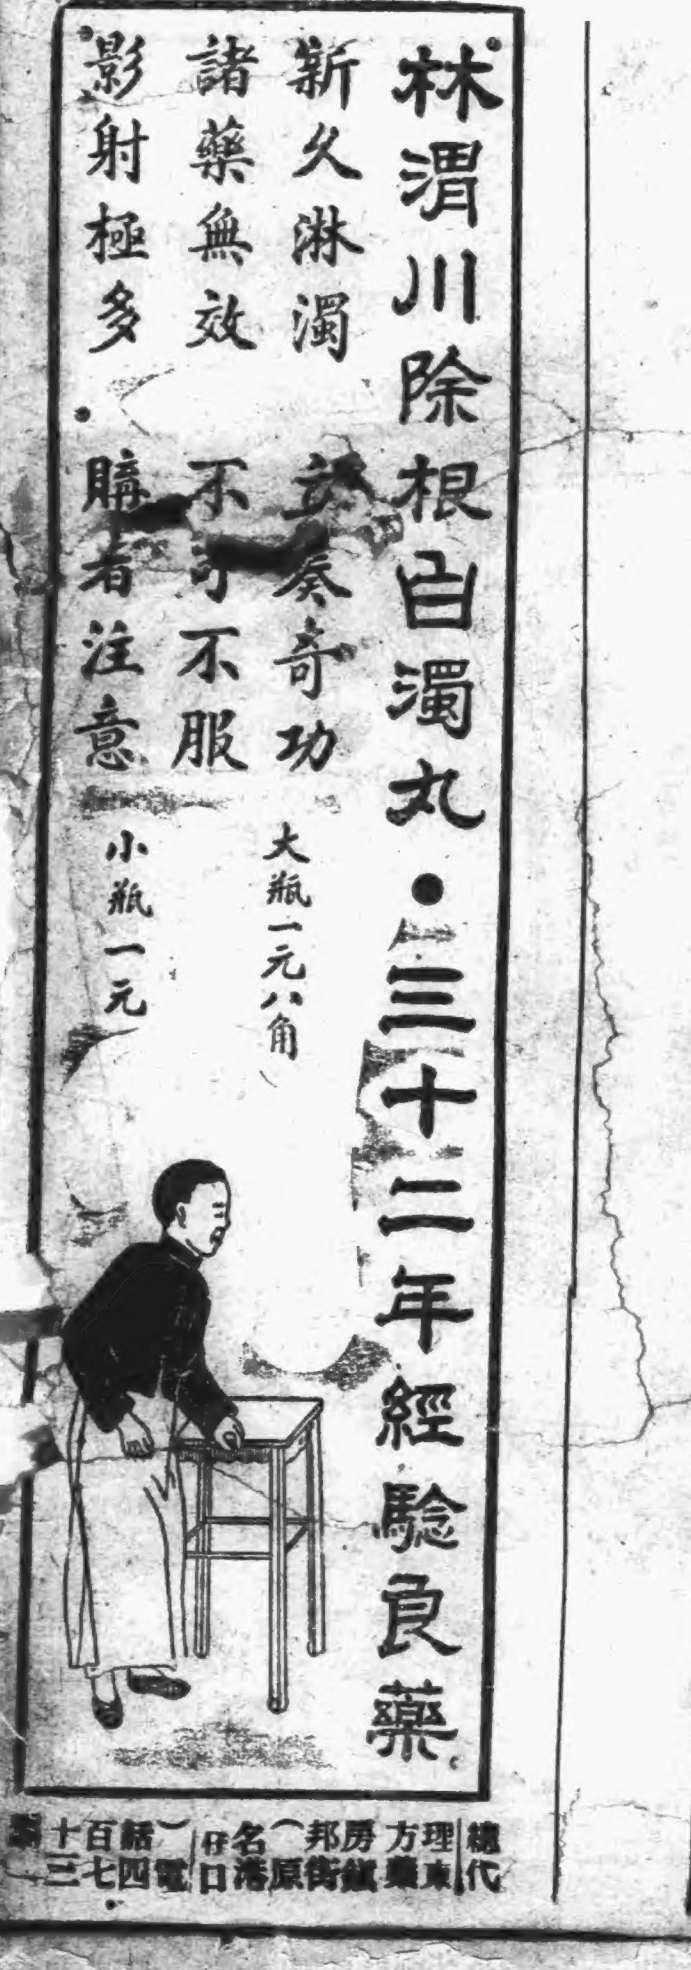 林渭川除根白濁丸●三十二年經驗良藥
新久淋濁 立奏奇功
諸藥無效 不可不服
影射極多 購者注意
大瓶一元八角
小瓶一元
總代理東方藥房鎮邦街(原名港仔口)電話四百七十三